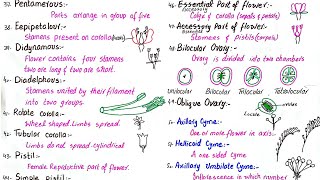 37. Pentamerous:-
Parts arrange in group of five
38. Epipetalous:-
Stamens present on corolla
39. Didynamous:-
Flower contains four stamens
two are long & two are short.
40. Diadelphous:-
Stamens united by their filament
into two groups
41. Rotate corolla:-
Wheel shaped. Limbs spread.
42. Tubular corolla:-
Limbs do not spread cylindrical
43. Pistil:-
Female Reproductive part of flower
44. Simple pistil
46. Essential Part of Flower:-
47. Accessory Part of flower:-
48. Bilocular Ovary:-
Ovary is divided into two chambers
Unilocular Bilocular Trilocular Tetralocular
49. Oblique Ovary:-
50. Axillary Cyme:-
One or more flower in axis.
51. Helicoid Cyme:-
A one sided cyme
52. Axillary Umbellate Cyme:-
Inflorescence in which number